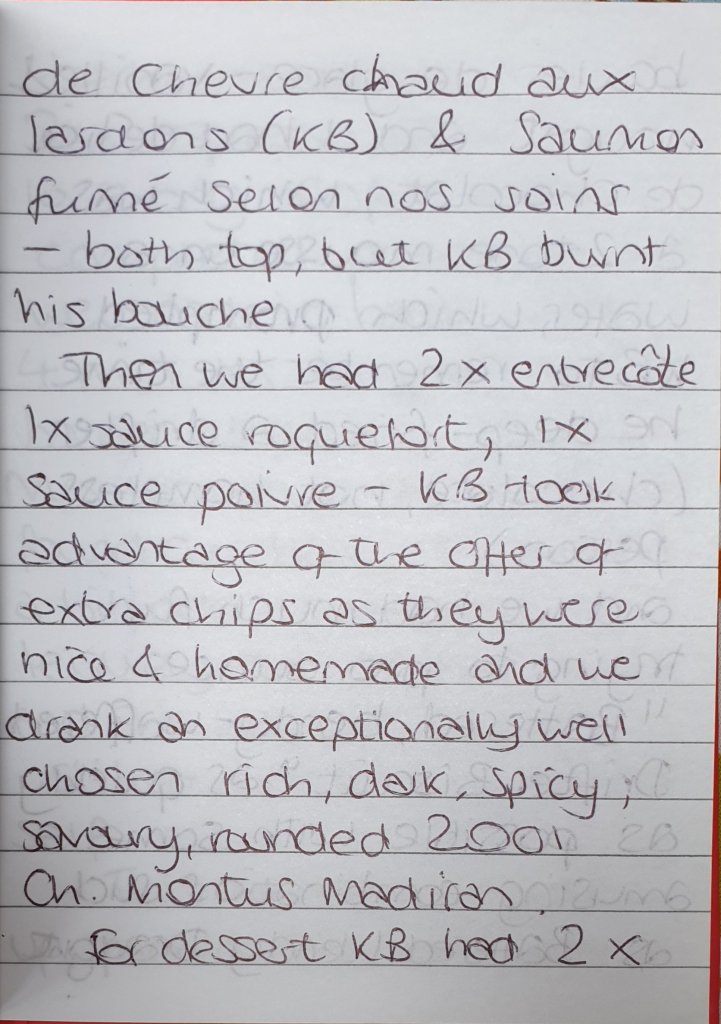 de Chevre chaud aux
lardons (KB) & Saumon
fumé selon nos soins
– both top, but KB burnt
his bouche.
Then we had 2 x entrecôte
1x sauce roquefort, 1x
sauce poivre – KB took
advantage of the offer of
extra chips as they were
nice & homemade and we
drank an exceptionally well
chosen rich, dark, spicy,
savoury, rounded 2001
Ch. Montus Madiran.
For dessert KB had 2 x